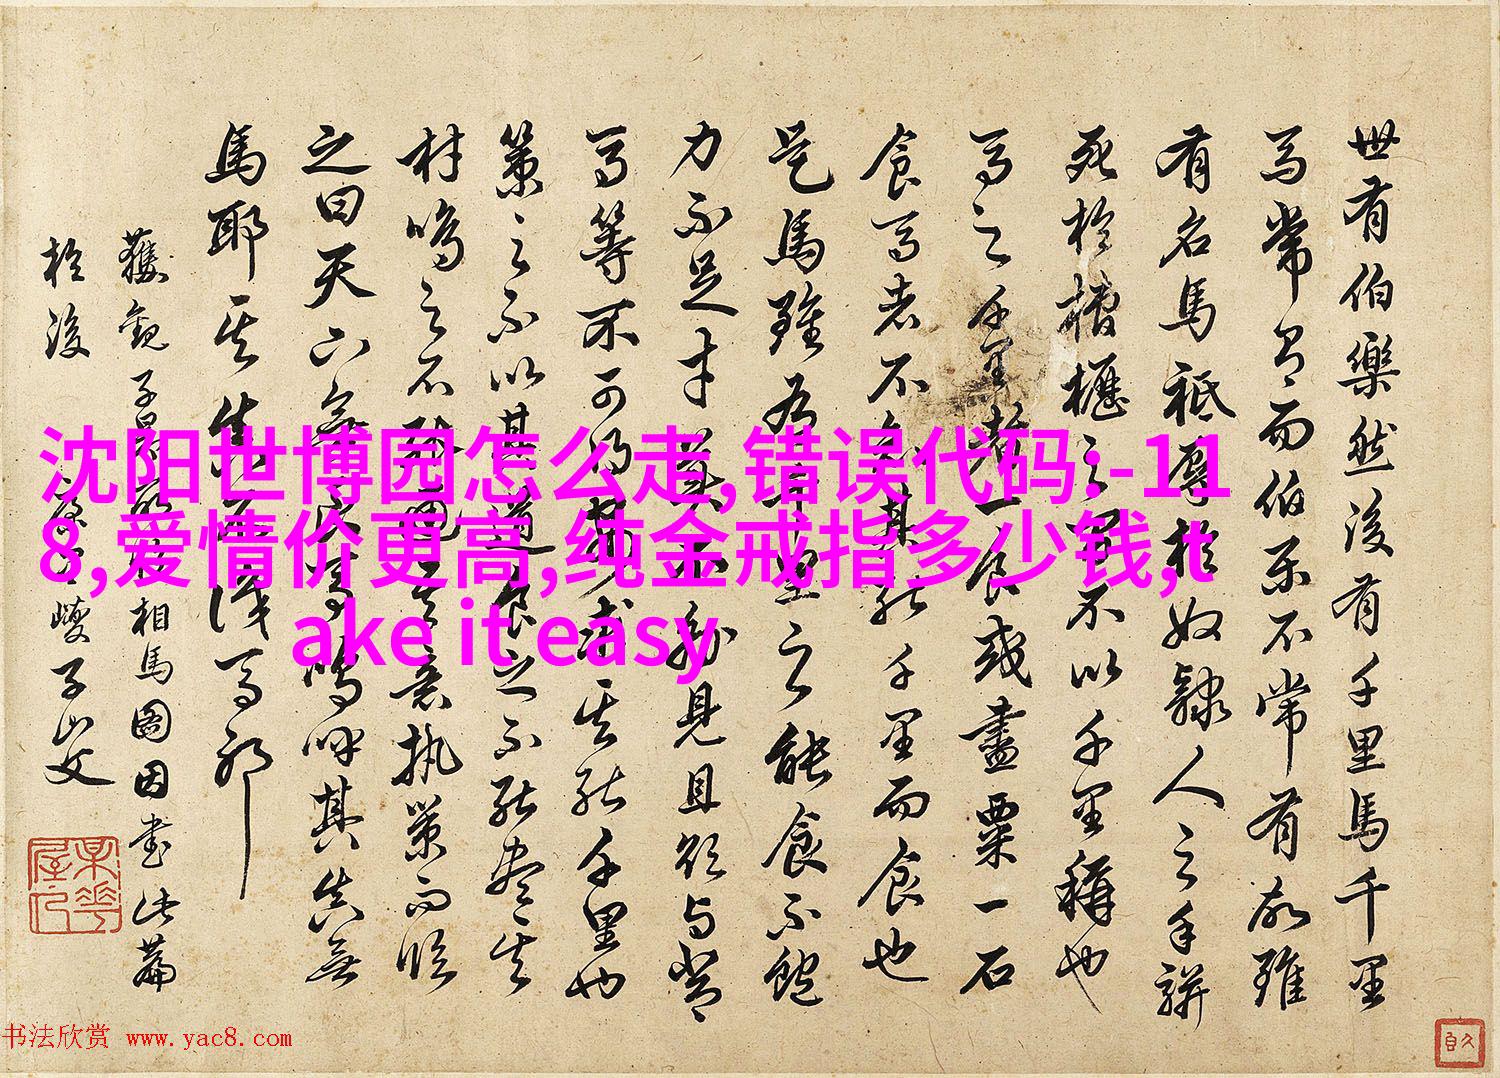 世有伯樂然後有千里馬千里
馬常有而伯樂不常有故雖
有名馬祗辱於奴隸人之手駢
死於槽櫪之間不以千里稱也
馬之千里者一食或盡粟一石
食馬者不知其能千里而食也
是馬雖有千里之能食不飽
力不足才美不外見且欲與常
馬等不可得安求其能千里也
策之不以其道食之不能盡其
材鳴之不能通其意執策而臨
之曰天下無良馬嗚呼其真無
馬耶其真不識馬耶
獲觀子昂相馬圖因書此篇
於後子山父
沈阳世博园怎么走,错误代码:-11
8,爱情价更高,纯金戒指多少钱,t
ake it easy
书法欣赏 www.yac8.com